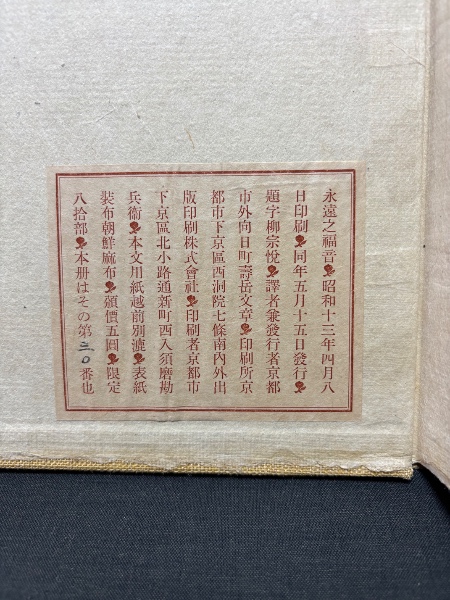 永遠之福音❦昭和十三年四月八
日印刷❦同年五月十五日發行❦
題字柳宗悅❦譯者兼發行者京都
市外向日町壽岳文章❦印刷所京
都市下京區西洞院七條南內外出
版印刷株式會社❦印刷者京都市
下京區北小路通新町西入須磨勘
兵衞❦本文用紙越前別漉❦表紙
裝布朝鮮麻布❦頒價五圓❦限定
八拾部❦本册はその第三〇番也